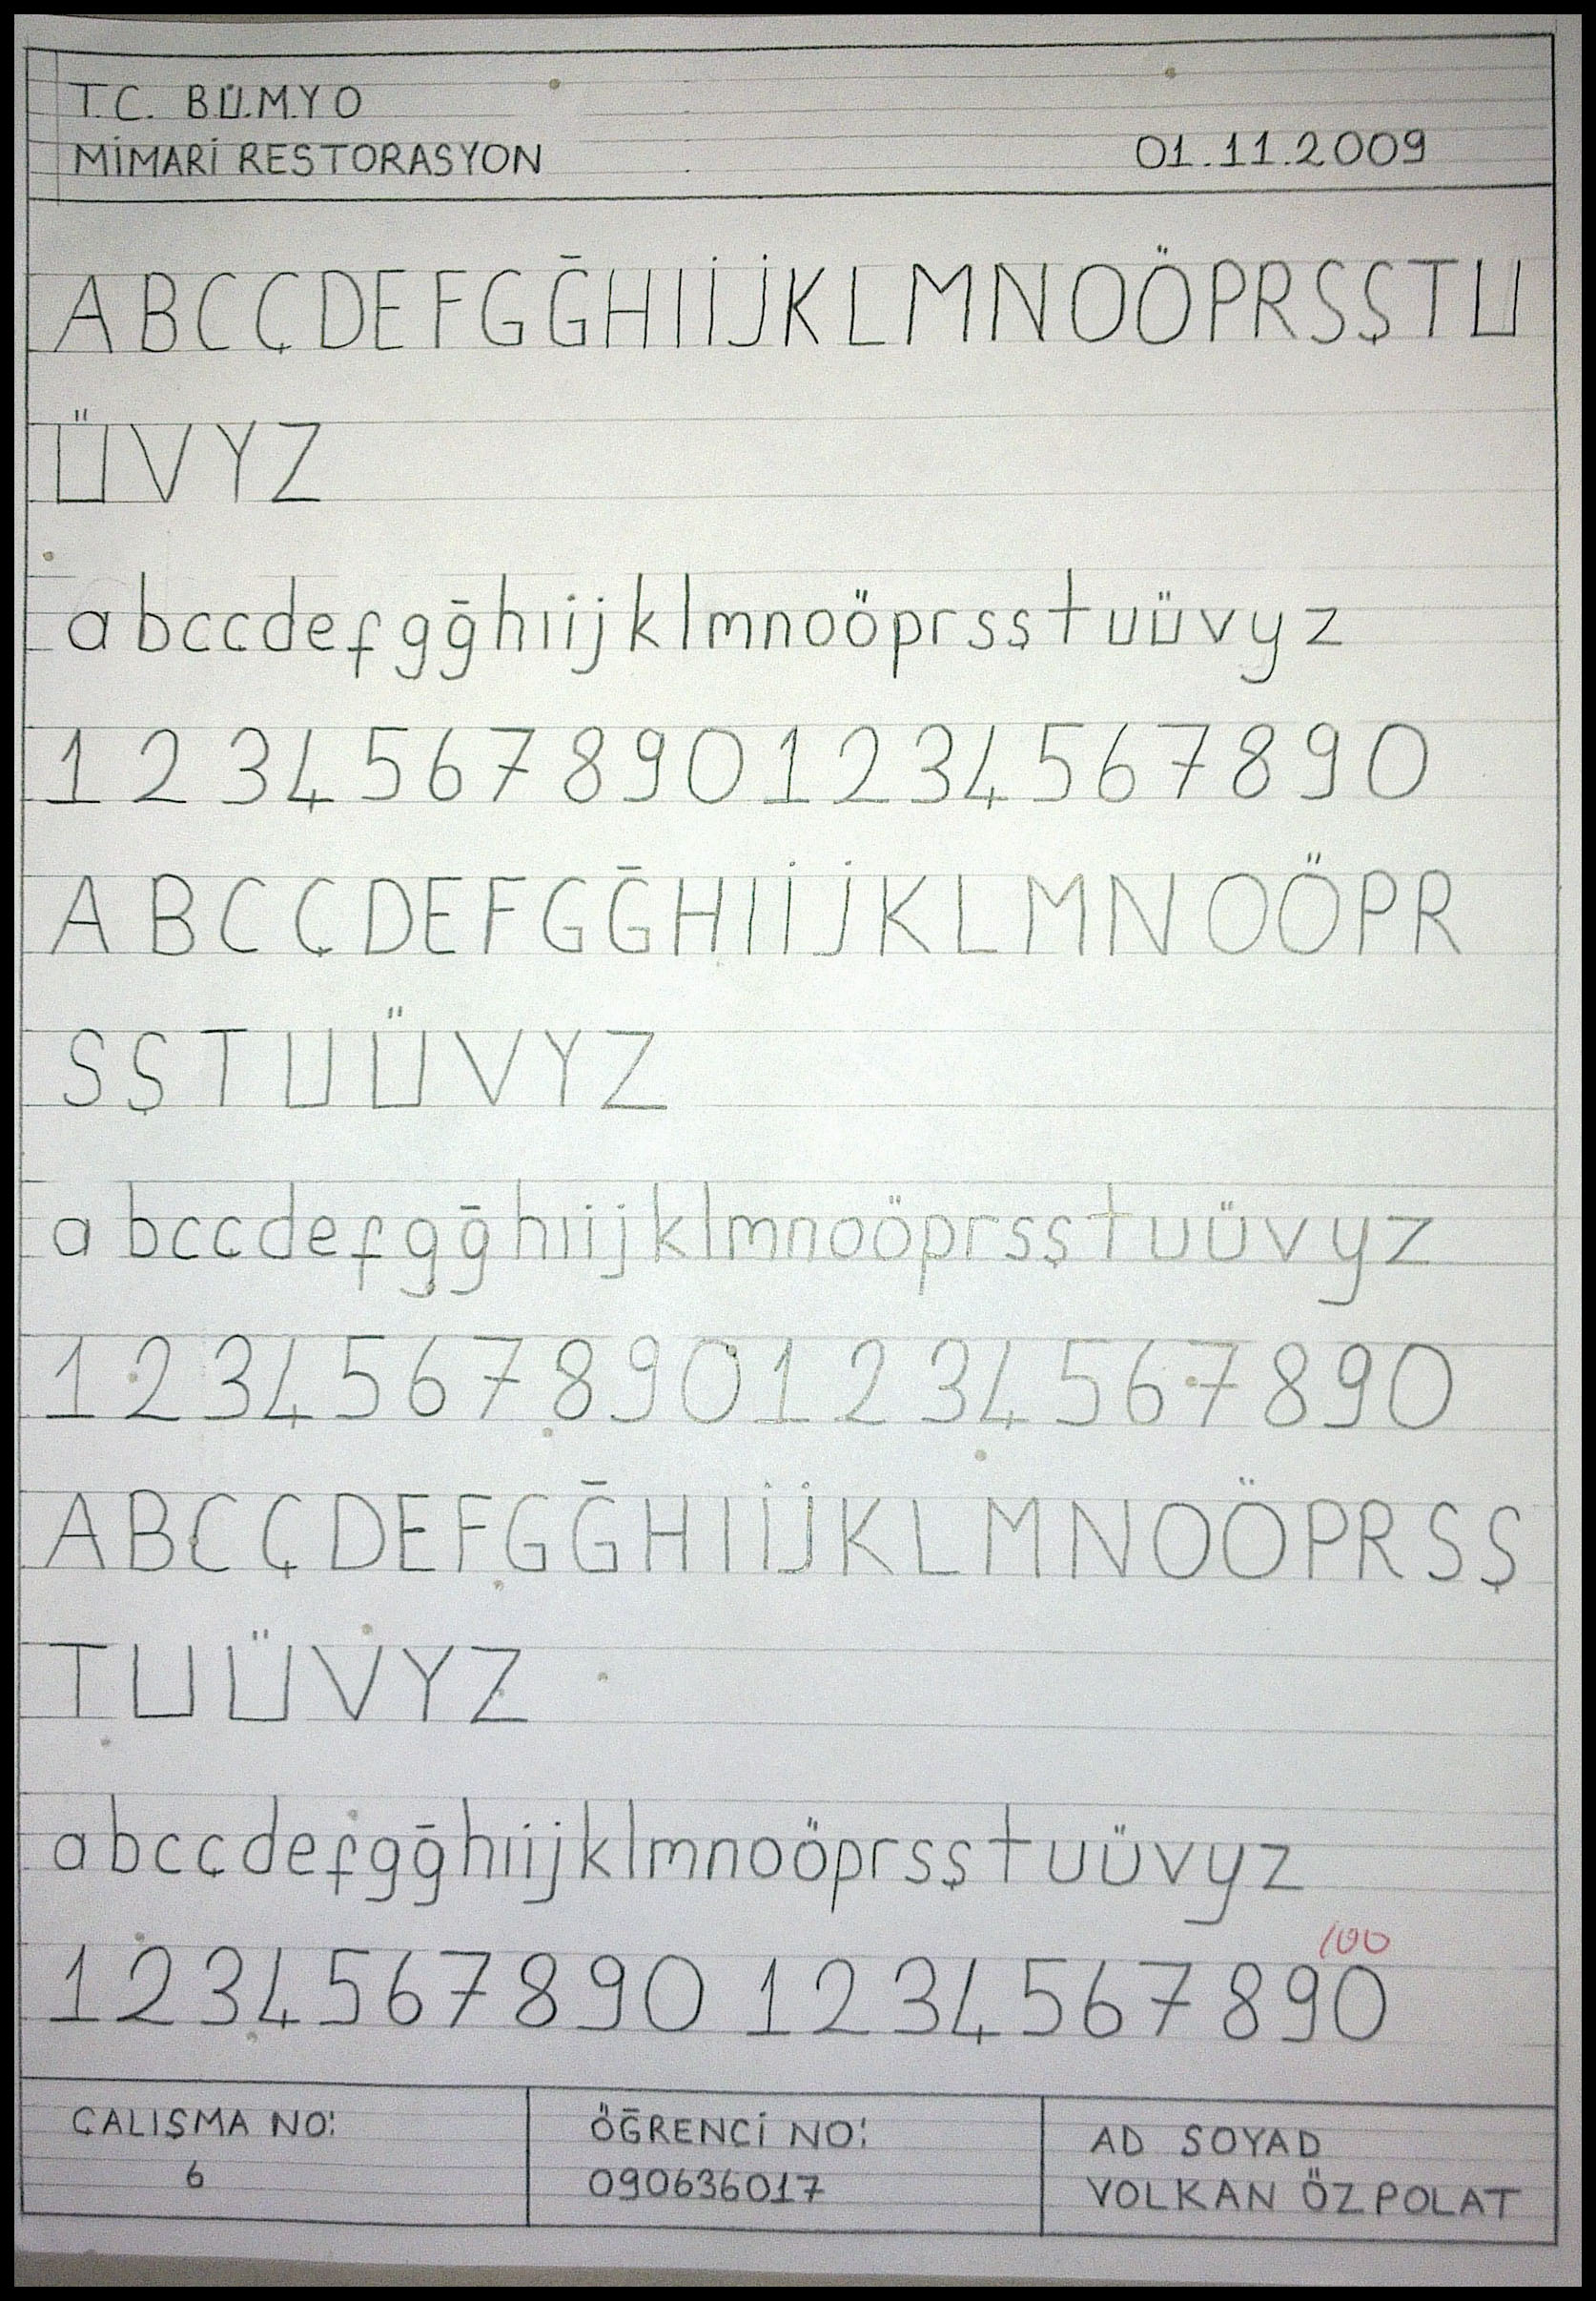 T.C. BÜ.M.Y O
MİMARİ RESTORASYON 01.11.2009
A B C Ç D E F G Ğ H I İ J K L M N O Ö P R S Ş T U
Ü V Y Z
a b c ç d e f g ğ h ı i j k l m n o ö p r s ş t u ü v y z
1 2 3 4 5 6 7 8 9 0 1 2 3 4 5 6 7 8 9 0
A B C Ç D E F G Ğ H I İ J K L M N O Ö P R
S Ş T U Ü V Y Z
a b c ç d e f g ğ h ı i j k l m n o ö p r s ş t u ü v y z
1 2 3 4 5 6 7 8 9 0 1 2 3 4 5 6 7 8 9 0
A B C Ç D E F G Ğ H I İ J K L M N O Ö P R S Ş
T U Ü V Y Z
a b c ç d e f g ğ h ı i j k l m n o ö p r s ş t u ü v y z
100
1 2 3 4 5 6 7 8 9 0 1 2 3 4 5 6 7 8 9 0
ÇALIŞMA NO: ÖĞRENCİ NO: AD SOYAD
6 090636017 VOLKAN ÖZPOLAT